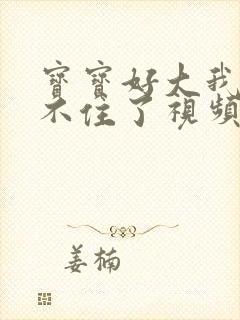 寶寶好大我
不住了視頻
姜楠